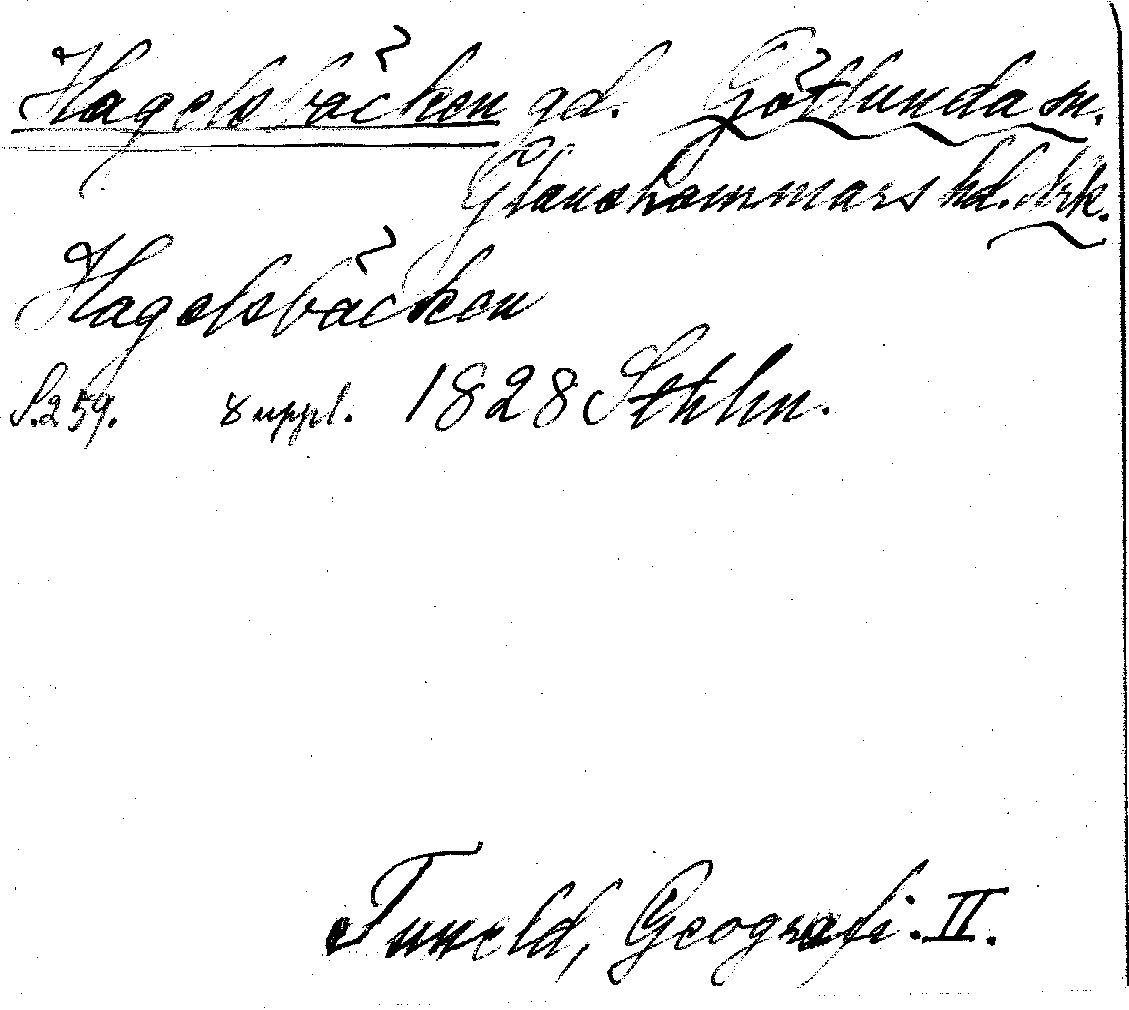 Hagelsbäcken gd. Götlunda sn.
Glanshammars hd. Nrk.
Hagelsbäcken
S. 259. 8 uppl. 1828 Sthlm.
Tuneld, Geografi. II.